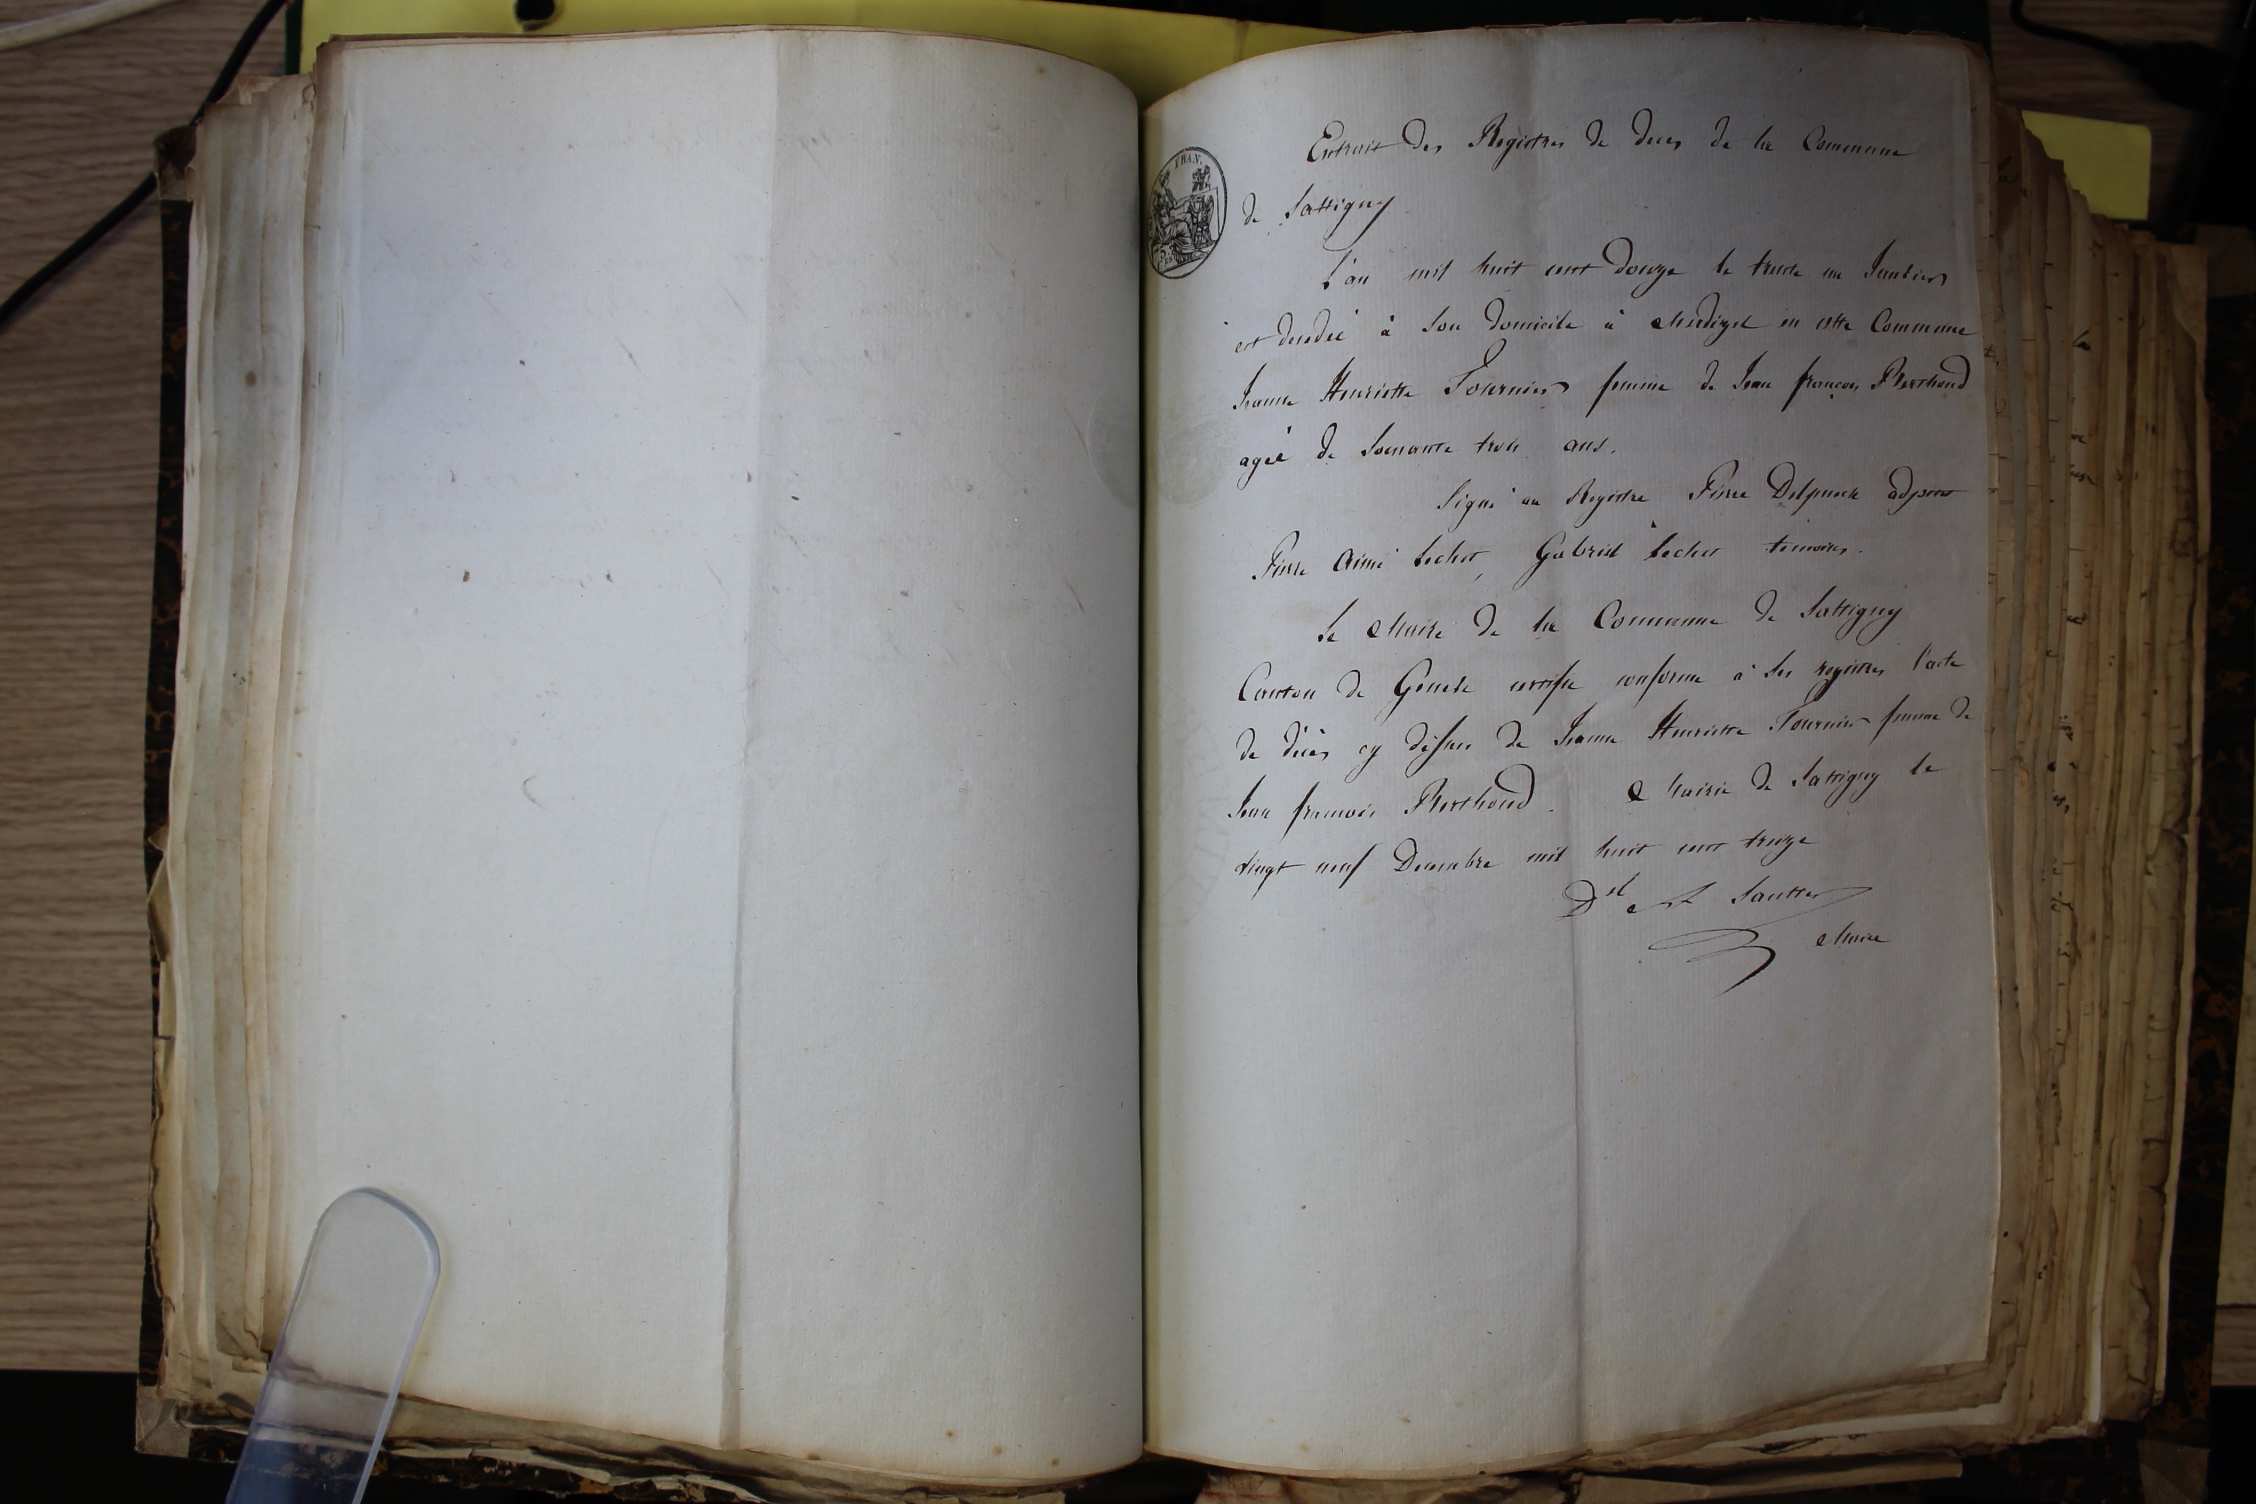 FRAN.
Extrait des Registres de deces de la Commune
de Sattigny
L'an mil huit cent douze le trente un Janvier
est décédée à son domicile à en cette Commune
Jeanne Henriette Fournier femme de Jean françois Berthoud
agée de soixante trois ans.
Signé au Registre Pierre Delpuech adjoint
Pierre Aimé Sechet, Gabriel Sechet temoins.
Le Maire de la Commune de Sattigny
Canton de Geneve certifie conforme à ses registres l'acte
de décès cy dessus de Jeanne Henriette Fournier femme de
Jean francois Berthoud. Mairie de Sattigny le
vingt neuf Decembre mil huit cent treize
Sautter
Maire